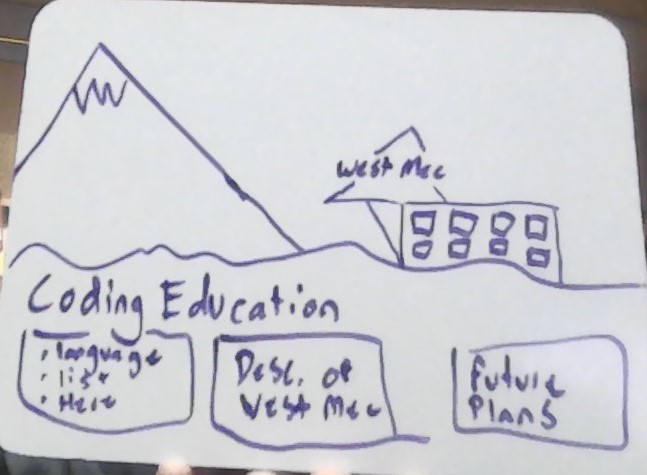 West Mec
Coding Education
• language
• list
• Here
Desc. of
West Mec
Future
Plans